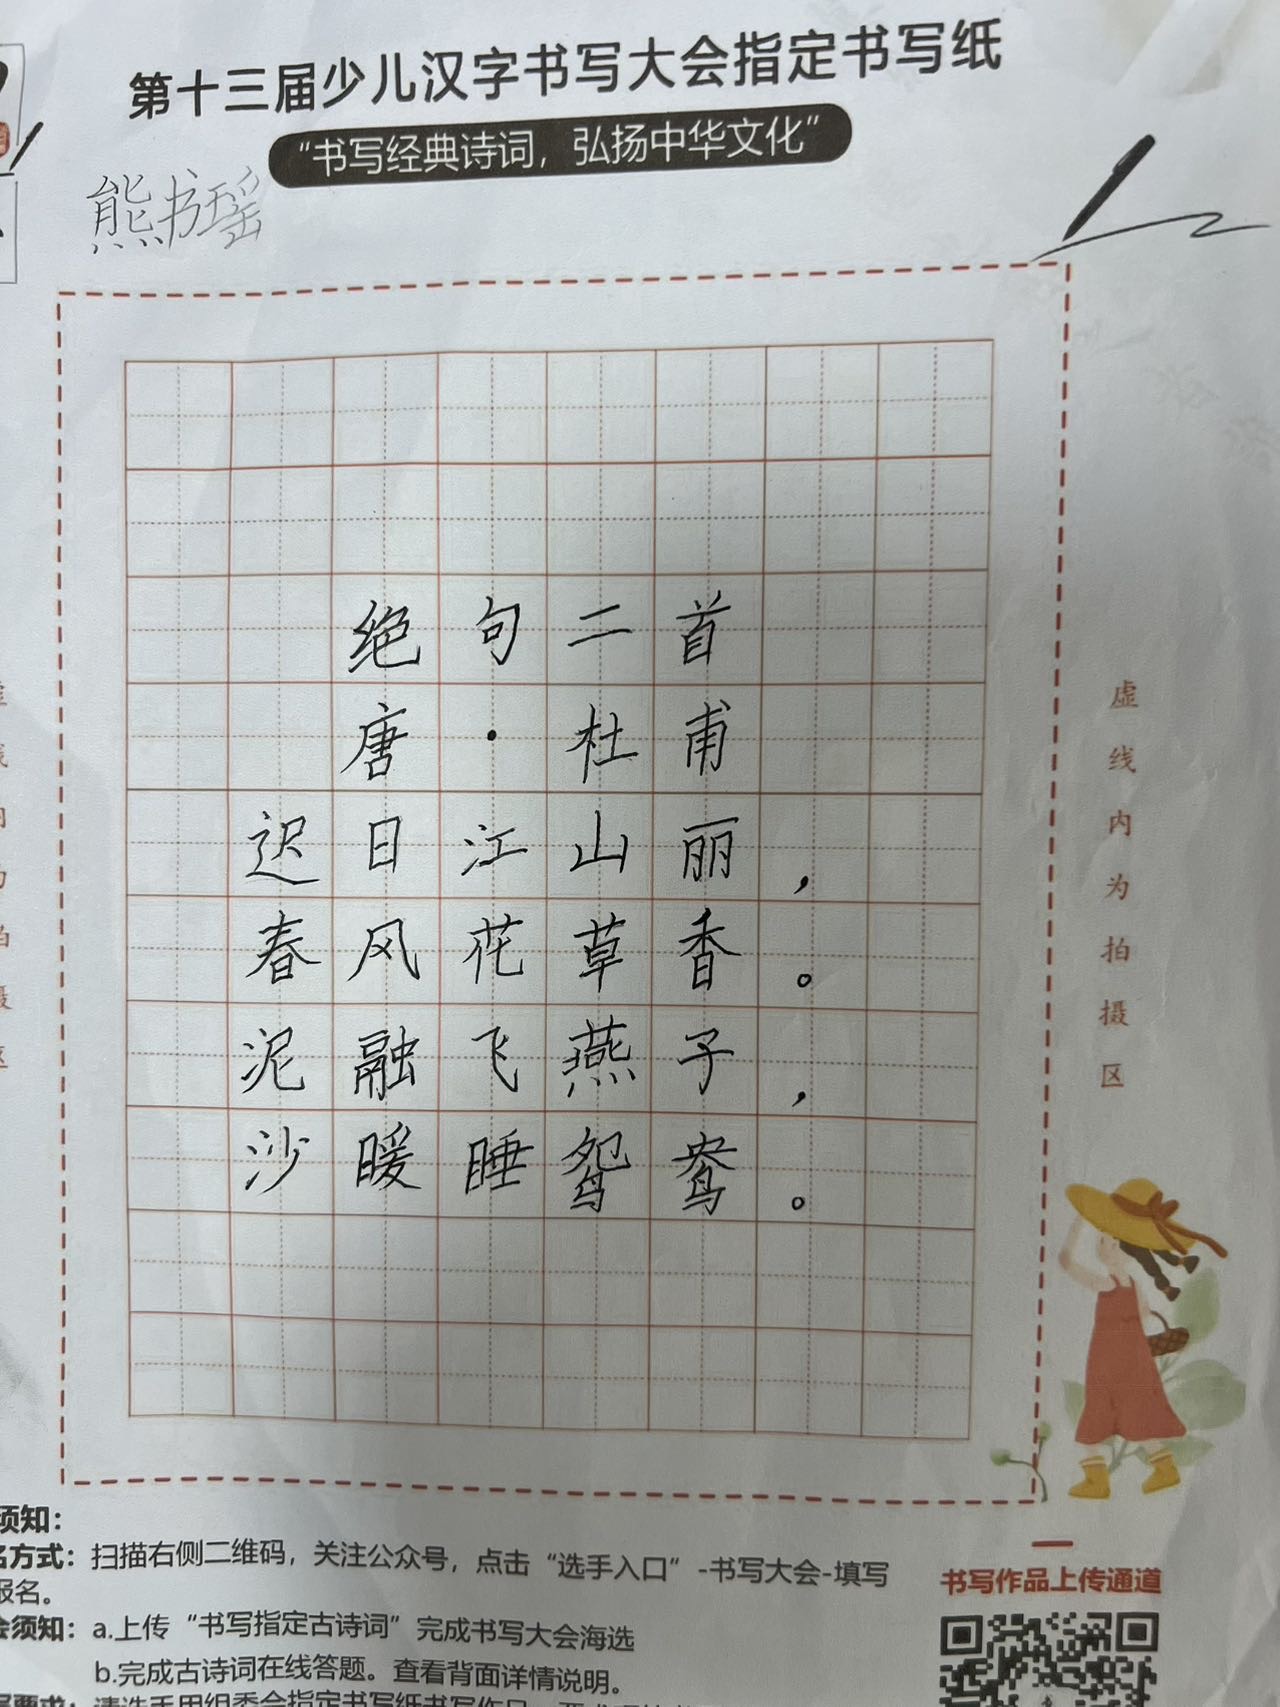 第十三届少儿汉字书写大会指定书写纸
“书写经典诗词，弘扬中华文化”
熊书瑶
绝句二首
唐·杜甫
迟日江山丽，
春风花草香。
泥融飞燕子，
沙暖睡鸳鸯。
虚线内为拍摄区
须知：
名方式：扫描右侧二维码，关注公众号，点击“选手入口”-书写大会-填写
报名。
会须知：a.上传“书写指定古诗词”完成书写大会海选
b.完成古诗词在线答题。查看背面详情说明。
书写作品上传通道